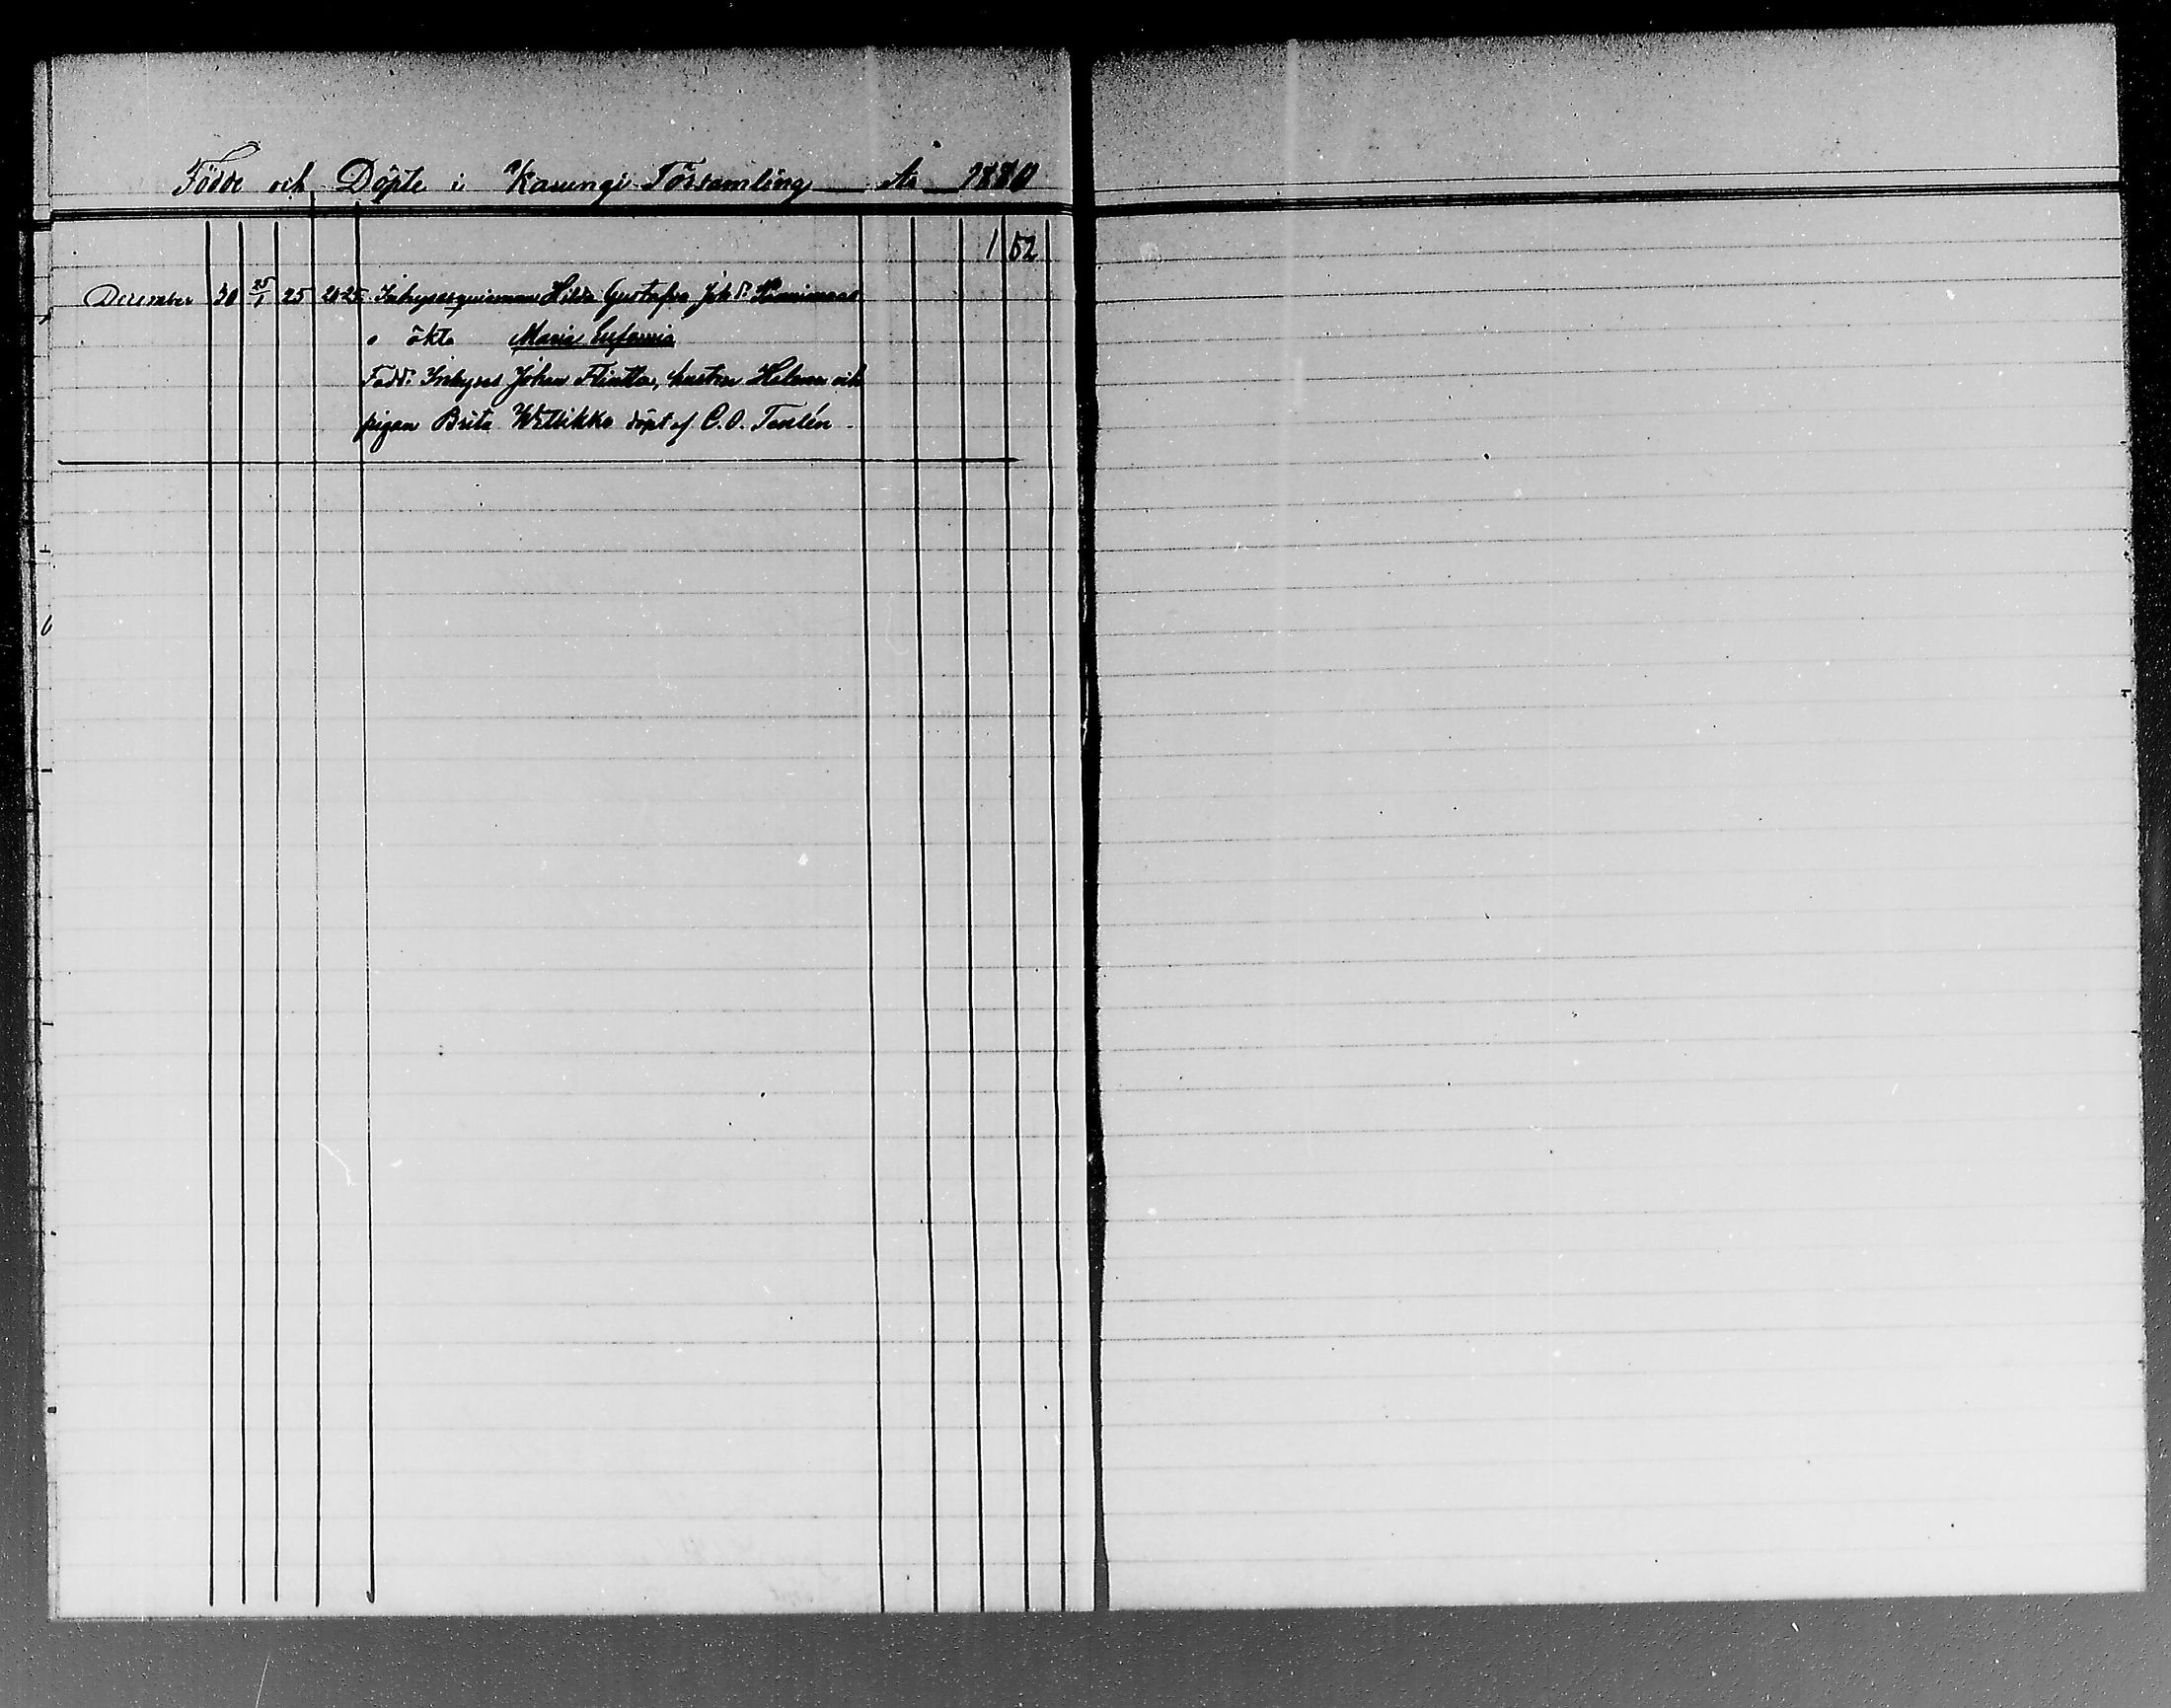 Födde och Döpte i Karungi Församling År 1880
1 52
December 30 25/1 25 20-25 Inhyses Hilda Gustafva Joh.d:r
o ökta Maria Eufemia
Fadd: Inhyses Johan Flintta, hustrun Helena och
pigan Brita döpt af C. O. Taulén.